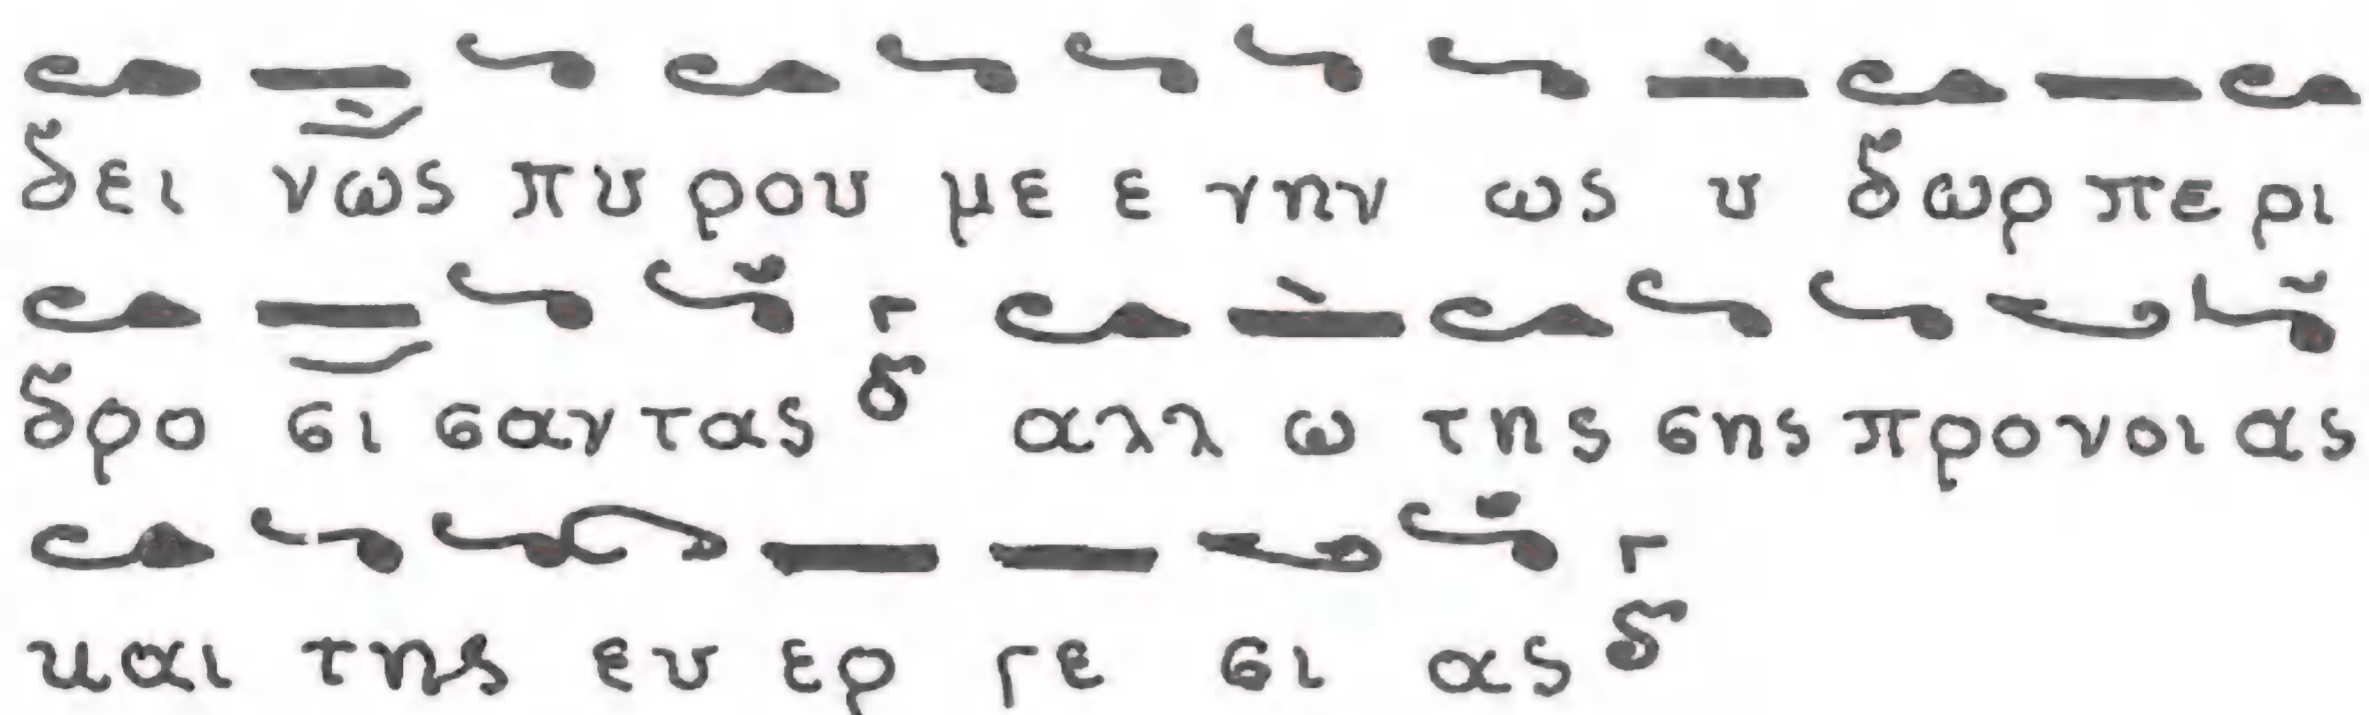 δει νως πυ ρου με ε νην ως υ δωρ πε ρι
δρο σι σαν τας δ αλλ ω της σης προ νοι ας
και της ευ ερ γε σι ας δ